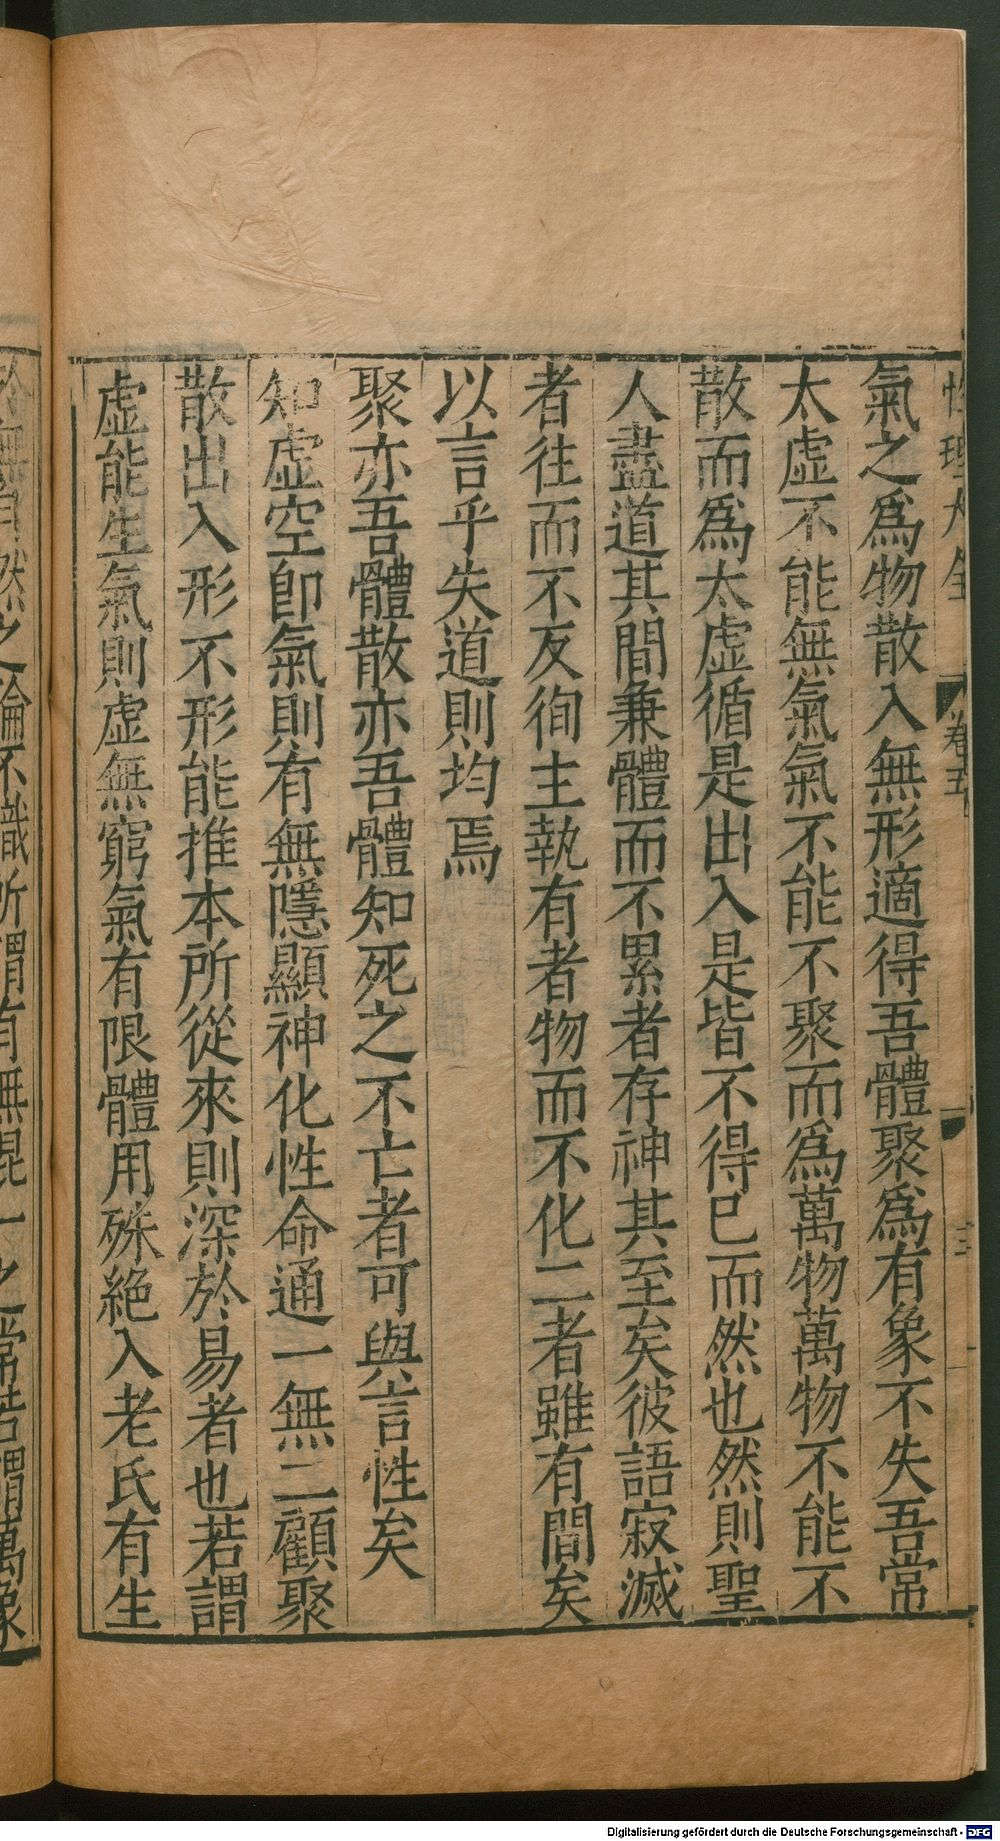 性理大全 卷五 三
氣之爲物散入無形適得吾體聚爲有象不失吾常
太虛不能無氣氣不能不聚而爲萬物萬物不能不
散而爲太虛循是出入是皆不得已而然也然則聖
人盡道其間兼體而不累者存神其至矣彼語寂滅
者往而不反徇主執有者物而不化二者雖有間矣
以言乎失道則均焉
聚亦吾體散亦吾體知死之不亡者可與言性矣
知虛空卽氣則有無隱顯神化性命通一無二顧聚
散出入形不形能推本所從來則深於易者也若謂
虛能生氣則虛無窮氣有限體用殊絶入老氏有生
無自然之論不識所謂有無混一之常若謂萬象
Digitalisierung gefördert durch die Deutsche Forschungsgemeinschaft - DFG